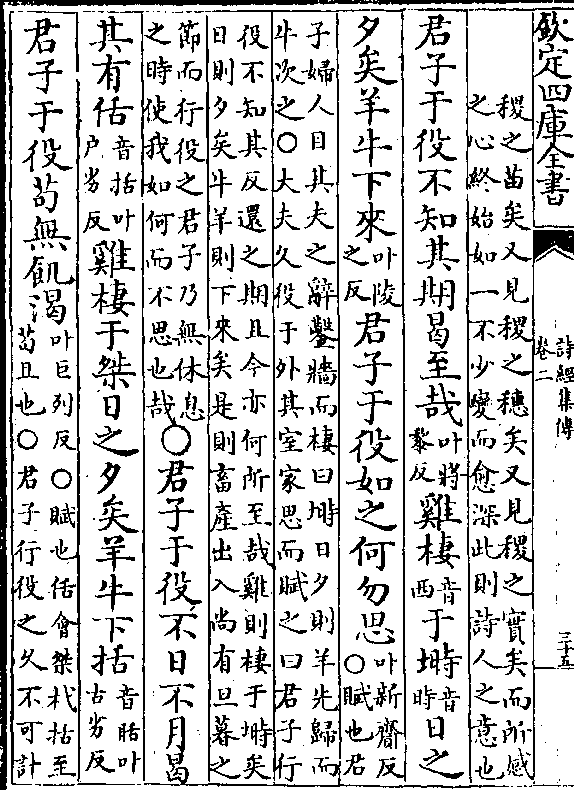 欽定四庫全書
詩經集傳
卷二
三十五
稷之苗矣又見稷之穗矣又見稷之實矣而所感
之心終始如一不少變而愈深此則詩人之意也
君子于役不知其期曷至哉叶將黎反雞棲音西于塒音時日之
夕矣羊牛下來叶陵之反君子于役如之何勿思叶新齎反○賦也君
子婦人目其夫之辭鑿牆而棲曰塒日夕則羊先歸而
牛次之○大夫久役于外其室家思而賦之曰君子行
役不知其反還之期且今亦何所至哉雞則棲于塒矣
日則夕矣牛羊則下來矣是則畜產出入尚有旦暮之
節而行役之君子乃無休息
之時使我如何而不思也哉○君子于役不日不月曷
其有佸音括叶户劣反雞棲于桀日之夕矣羊牛下括音聒叶古劣反
君子于役苟無飢渴叶巨列反○賦也佸會桀杙括至
苟且也○君子行役之久不可計